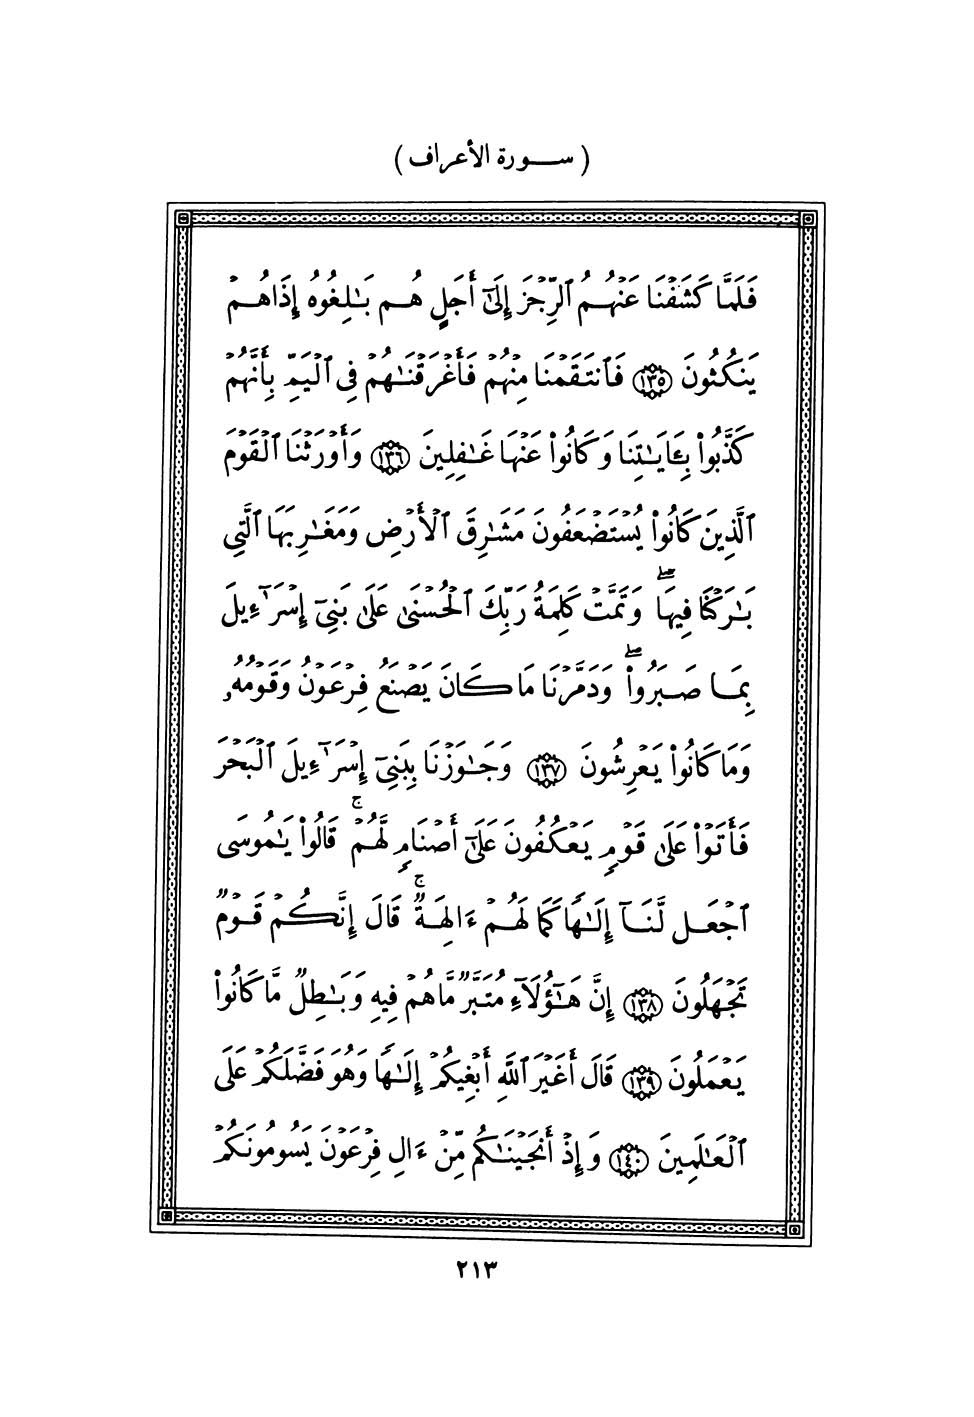 ( سـورة الأعراف )
فَلَمَّا كَشَفْنَا عَنْهُمُ ٱلرِّجْزَ إِلَىٰٓ أَجَلٍ هُم بَـٰلِغُوهُ إِذَا هُمْ
يَنكُثُونَ ﴿١٣٥﴾ فَٱنتَقَمْنَا مِنْهُمْ فَأَغْرَقْنَـٰهُمْ فِى ٱلْيَمِّ بِأَنَّهُمْ
كَذَّبُوا۟ بِـَٔايَـٰتِنَا وَكَانُوا۟ عَنْهَا غَـٰفِلِينَ ﴿١٣٦﴾ وَأَوْرَثْنَا ٱلْقَوْمَ
ٱلَّذِينَ كَانُوا۟ يُسْتَضْعَفُونَ مَشَـٰرِقَ ٱلْأَرْضِ وَمَغَـٰرِبَهَا ٱلَّتِى
بَـٰرَكْنَا فِيهَا ۖ وَتَمَّتْ كَلِمَةُ رَبِّكَ ٱلْحُسْنَىٰ عَلَىٰ بَنِىٓ إِسْرَٰٓءِيلَ
بِمَا صَبَرُوا۟ ۖ وَدَمَّرْنَا مَا كَانَ يَصْنَعُ فِرْعَوْنُ وَقَوْمُهُۥ
وَمَا كَانُوا۟ يَعْرِشُونَ ﴿١٣٧﴾ وَجَـٰوَزْنَا بِبَنِىٓ إِسْرَٰٓءِيلَ ٱلْبَحْرَ
فَأَتَوْا۟ عَلَىٰ قَوْمٍ يَعْكُفُونَ عَلَىٰٓ أَصْنَامٍ لَّهُمْ ۚ قَالُوا۟ يَـٰمُوسَى
ٱجْعَل لَّنَآ إِلَـٰهًا كَمَا لَهُمْ ءَالِهَةٌ ۚ قَالَ إِنَّكُمْ قَوْمٌ
تَجْهَلُونَ ﴿١٣٨﴾ إِنَّ هَـٰٓؤُلَآءِ مُتَبَّرٌ مَّا هُمْ فِيهِ وَبَـٰطِلٌ مَّا كَانُوا۟
يَعْمَلُونَ ﴿١٣٩﴾ قَالَ أَغَيْرَ ٱللَّهِ أَبْغِيكُمْ إِلَـٰهًا وَهُوَ فَضَّلَكُمْ عَلَى
ٱلْعَـٰلَمِينَ ﴿١٤٠﴾ وَإِذْ أَنجَيْنَـٰكُم مِّنْ ءَالِ فِرْعَوْنَ يَسُومُونَكُمْ
٢١٣